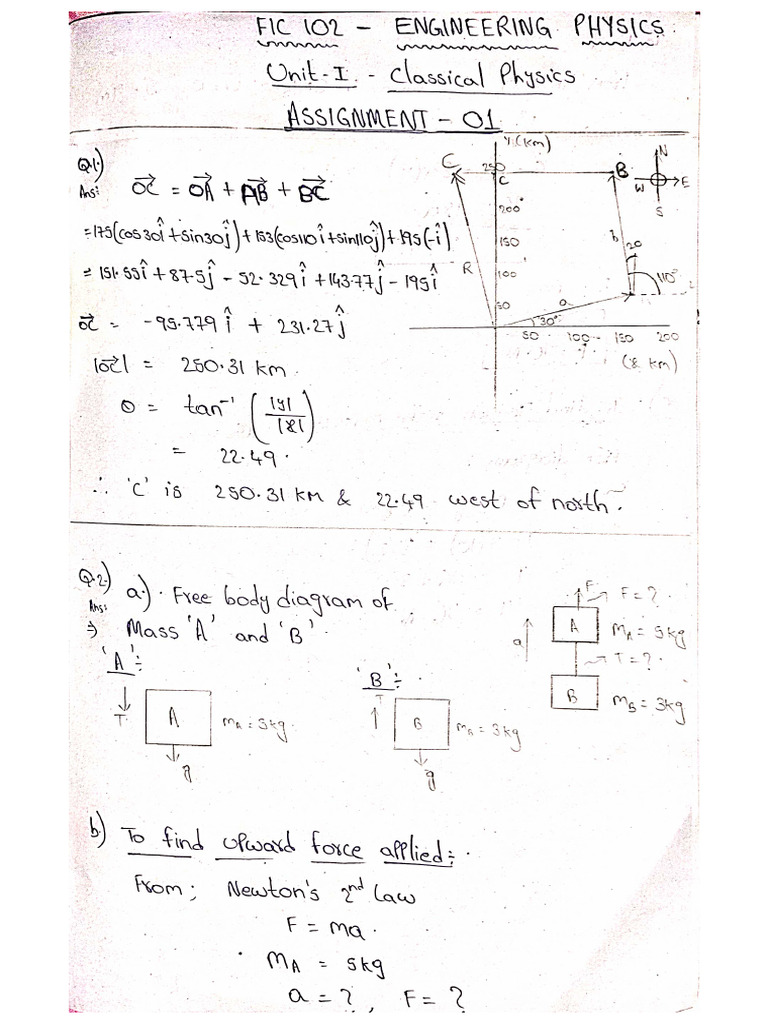 FIC 102 - ENGINEERING PHYSICS
Unit-I - Classical Physics
ASSIGNMENT - 01
Q.1)
Ans: OC = OA + AB + BC
= 175(cos30 î + sin30 ĵ) + 153(cos110 î + sin110 ĵ) + 195(-î)
= 151.55 î + 87.5 ĵ - 52.329 î + 143.77 ĵ - 195 î
OC = -95.779 î + 231.27 ĵ
|OC| = 250.31 km.
θ = tan⁻¹ (|y|/|x|)
= 22.49.
∴ 'C' is 250.31 km & 22.49 west of north.
Y (km)
C
250
C
B
N
W
E
S
200
150
100
50
R
b
20
110°
a
30°
50 100 150 200
(x km)
Q.2)
Ans: a). Free body diagram of
⇒ Mass 'A' and 'B'.
'A':
T
A
mA = 3kg.
g
'B':
T
B
mB = 3kg
g
F
F = ?
a
A
mA = 5kg
T = ?
B
mB = 3kg
b) To find upward force applied:
From; Newton's 2nd Law
F = ma.
mA = 5kg
a = ?, F = ?